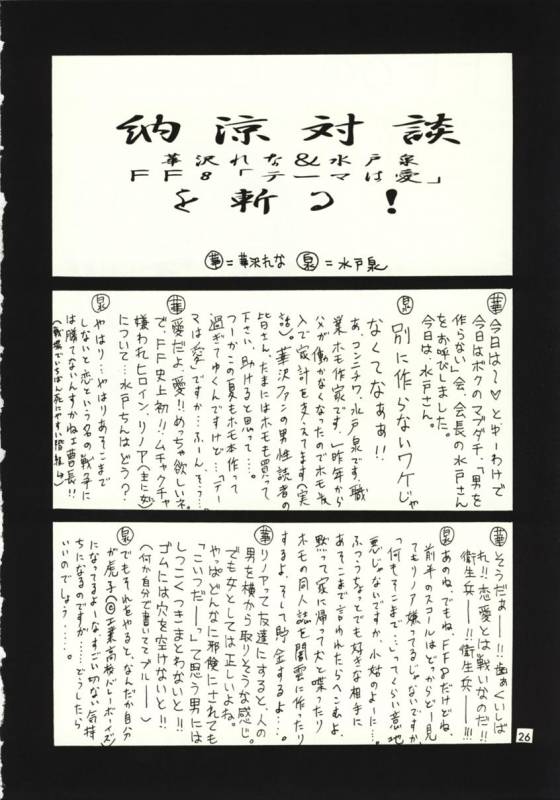 納涼対談
華沢れな&水戸泉
FF8「テーマは愛」
を斬る!
華=華沢れな 泉=水戸泉
華 今日は〜♡とゆーわけで
今日はボクのマブダチ、「男を
作らない」会、会長の水戸さん
をお呼びしました。
今日は、水戸さん。
泉 別に作らないワケじゃ
なくてなぁぁ!!
あ、コンニチワ、水戸泉です。職
業ホモ作家です。一昨年から
ハハが働かなくなったのでホモ収
入で家計を支えてます(実
話)。華沢ファンの男性読者の
皆さん、たまにはホモも買って
下さい、助けると思って…。
つーかこの夏もホモ本作って
過ぎてゆくんですけど…「テー
マは愛」ですか…ふーん、そっ…。
華 愛だよ、愛!!めっちゃ欲しいネ。
で、FF史上初!!ムチャクチャ
嫌われヒロイン、リノア(主に女)
について…水戸ちんはどう?
泉 やはり…やはりあそこまで
しないと恋という名の戦争に
は勝てないんすかね工曹長!!
華 そうだぁー!!歯ぁくいしば
れ!!恋愛とは戦いなのだ!!
衛生兵ー!!衛生兵ー!!!
泉 あのね、でもね、FF8だけどね、
前半のスコールはどっからどー見
てもリノア嫌ってるじゃないですか
「何もそこまで…」ってくらい意地
悪じゃないですか、小姑のよーに…。
ふつうちょっとでも好きな相手に
あそこまで言われたらへこむよ、
黙って家に帰って犬と喋ったり
ホモの同人誌を闇雲に作ったり
するよ、そして貯金するよ…。
華 リノアって友達にすると、人の
男を横から取りそうな感じ。
でも女としては正しいよね。
やっぱどんなに邪険にされても
「こいつだーっ」て思う男には
しつこくつきまとわないと!!
ゴムには穴を空けないと!!
(何か自分で書いててブルー)
泉 でもそれをやると、なんだか自分
が虎子(©工業高校バレーボーイズ)
になってるよーなすごい切ない気持
ちになるのですが……どうしたら
いいのでしょう……。
26